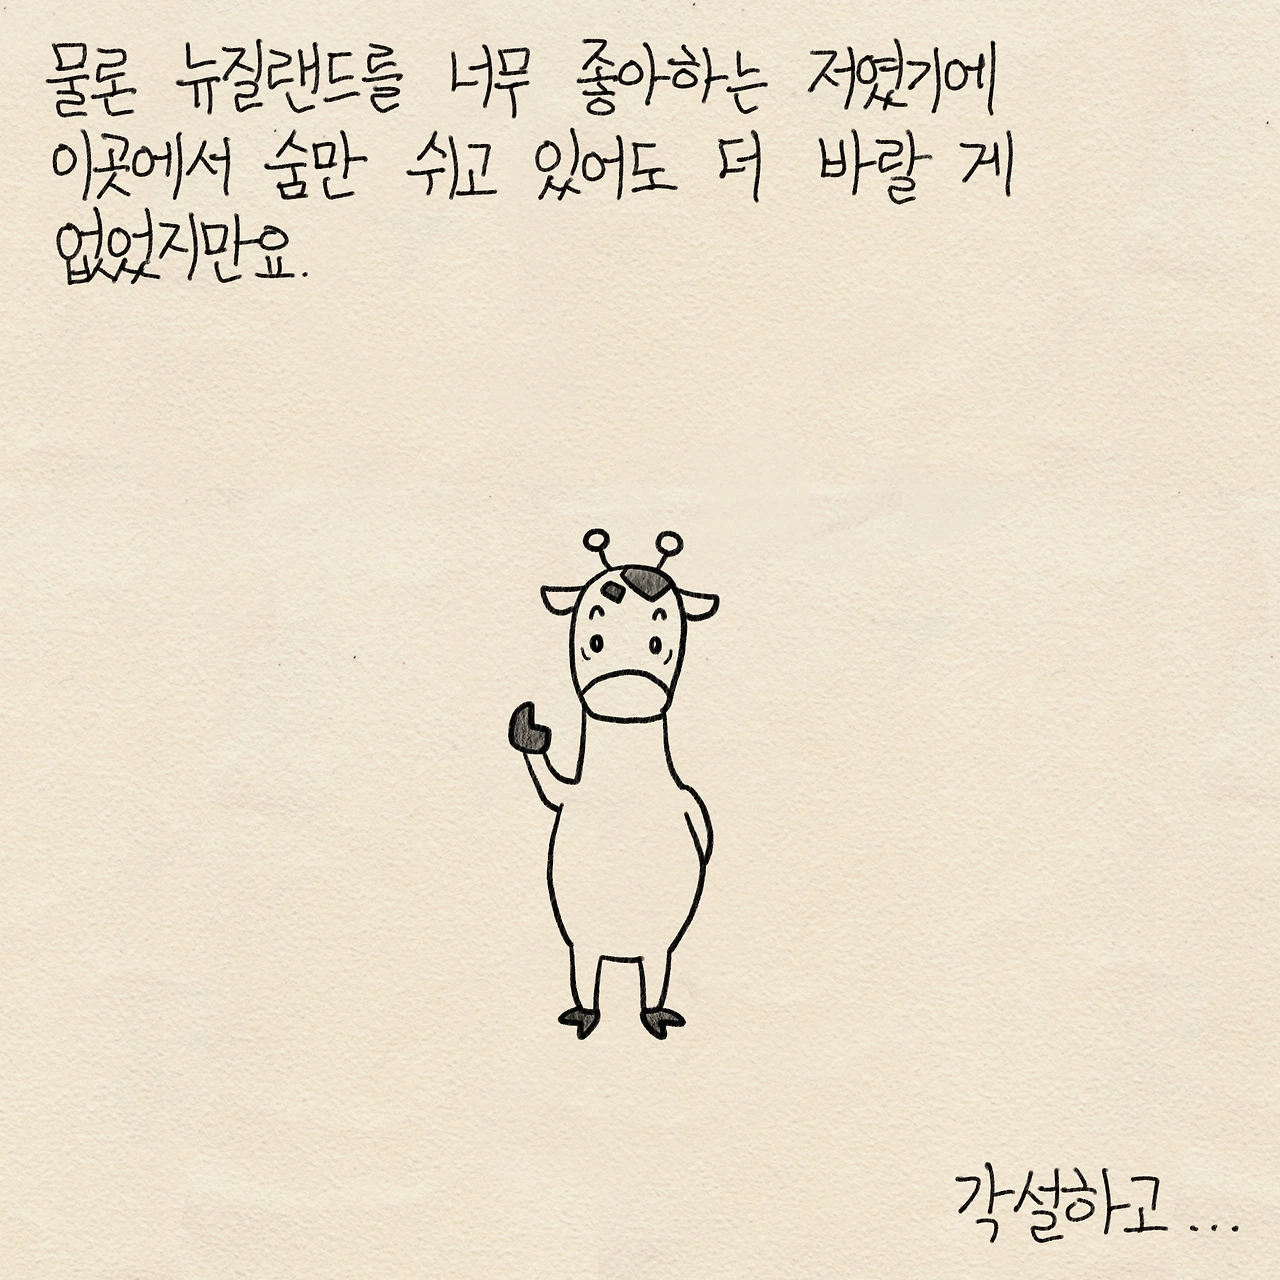 물론 뉴질랜드를 너무 좋아하는 저였기에
이곳에서 숨만 쉬고 있어도 더 바랄 게
없었지만요.
각설하고...